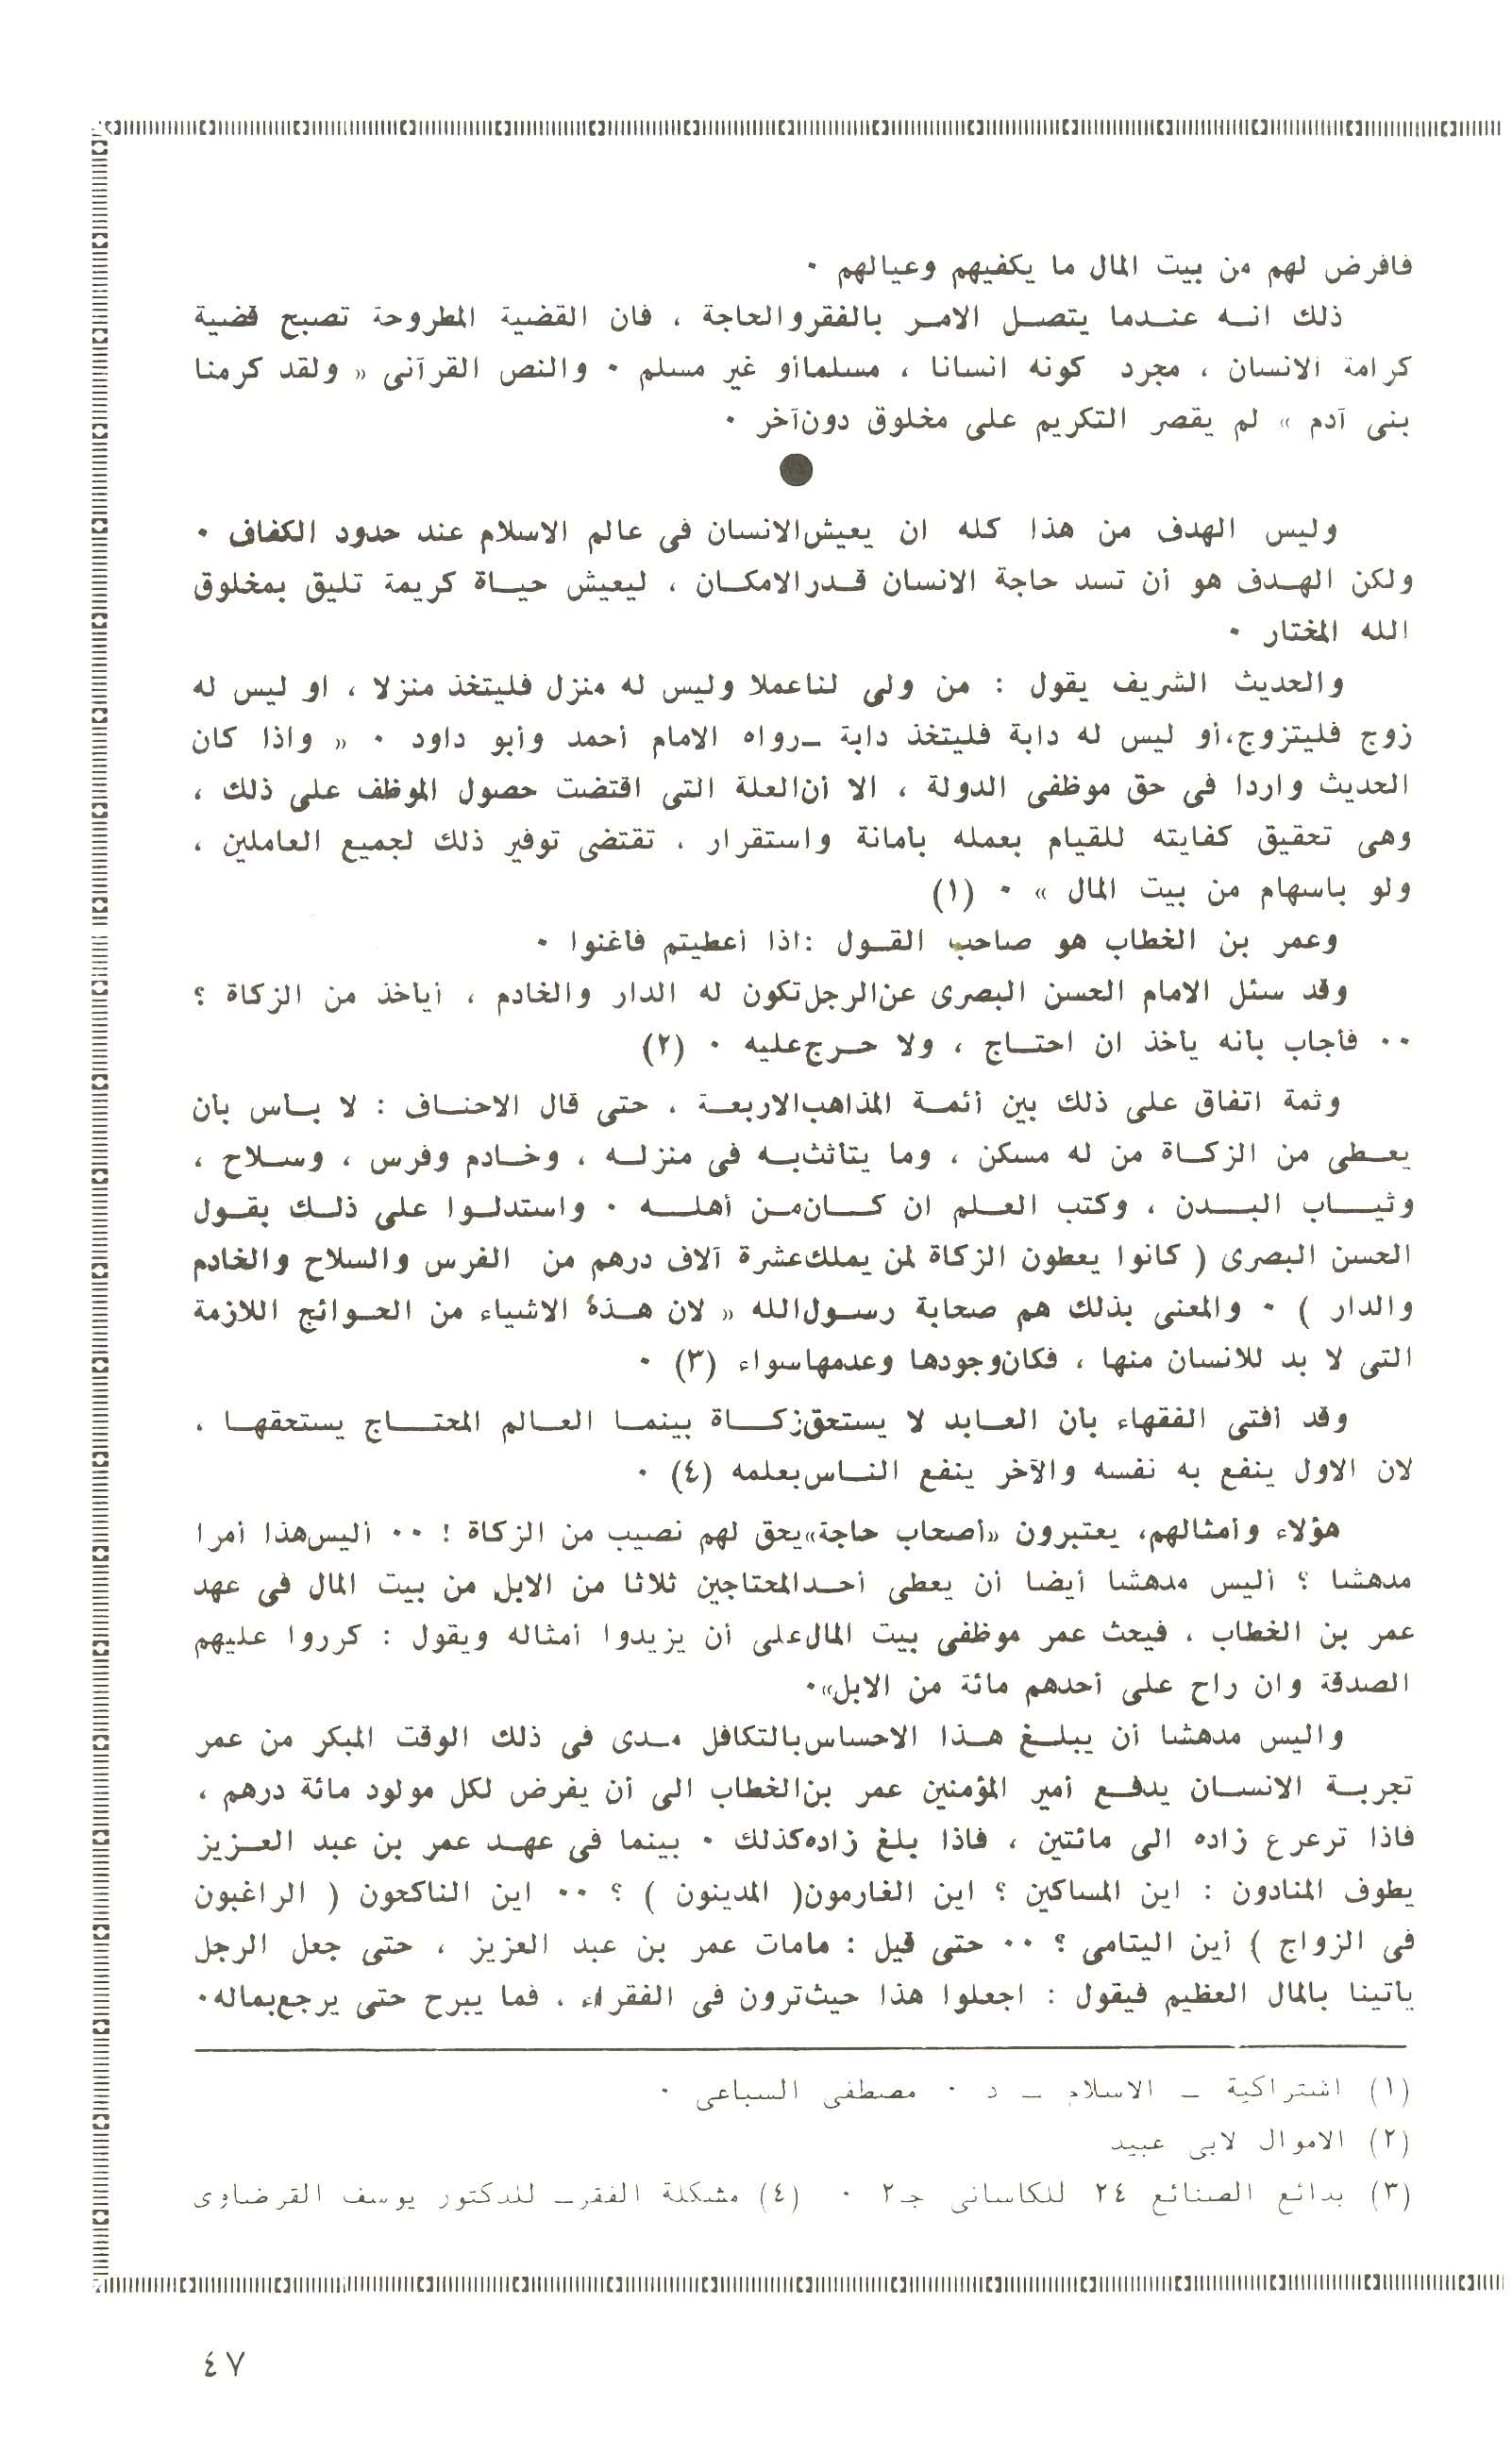 فافرض لهم من بيت المال ما يكفيهم وعيالهم ٠
ذلك انه عندما يتصل الامر بالفقر والحاجة ، فان القضية المطروحة تصبح قضية
كرامة الانسان ، مجرد كونه انسانا ، مسلما أو غير مسلم ٠ والنص القرآنى « ولقد كرمنا
بنى آدم » لم يقصر التكريم على مخلوق دون آخر ٠
وليس الهدف من هذا كله ان يعيش الانسان فى عالم الاسلام عند حدود الكفاف ٠
ولكن الهدف هو أن تسد حاجة الانسان قدر الامكان ، ليعيش حياة كريمة تليق بمخلوق
الله المختار ٠
والحديث الشريف يقول : من ولى لنا عملا وليس له منزل فليتخذ منزلا ، او ليس له
زوج فليتزوج، أو ليس له دابة فليتخذ دابة ــ رواه الامام أحمد وأبو داود ٠ « واذا كان
الحديث واردا فى حق موظفى الدولة ، الا أن العلة التى اقتضت حصول الموظف على ذلك ،
وهى تحقيق كفايته للقيام بعمله بأمانة واستقرار ، تقتضى توفير ذلك لجميع العاملين ،
ولو باسهام من بيت المال » ٠ (١)
وعمر بن الخطاب هو صاحب القول : اذا أعطيتم فاغنوا ٠
وقد سئل الامام الحسن البصرى عن الرجل تكون له الدار والخادم ، أياخذ من الزكاة ؟
٠٠ فأجاب بأنه يأخذ ان احتاج ، ولا حرج عليه ٠ (٢)
وثمة اتفاق على ذلك بين أئمة المذاهب الاربعة ، حتى قال الاحناف : لا بأس بان
يعطى من الزكاة من له مسكن ، وما يتأثث به فى منزله ، وخادم وفرس ، وسلاح ،
وثياب البدن ، وكتب العلم ان كان من أهله ٠ واستدلوا على ذلك بقول
الحسن البصرى ( كانوا يعطون الزكاة لمن يملك عشرة آلاف درهم من الفرس والسلاح والخادم
والدار ) ٠ والمعنى بذلك هم صحابة رسول الله « لان هذه الاشياء من الحوائج اللازمة
التى لا بد للانسان منها ، فكان وجودها وعدمها سواء (٣) ٠
وقد أفتى الفقهاء بأن العابد لا يستحق زكاة بينما العالم المحتاج يستحقها ،
لان الاول ينفع به نفسه والآخر ينفع الناس بعلمه (٤) ٠
هؤلاء وأمثالهم، يعتبرون «أصحاب حاجة» يحق لهم نصيب من الزكاة ! ٠٠ أليس هذا أمرا
مدهشا ؟ أليس مدهشا أيضا أن يعطى أحد المحتاجين ثلاثا من الابل من بيت المال فى عهد
عمر بن الخطاب ، فيحث عمر موظفى بيت المال على أن يزيدوا أمثاله ويقول : كرروا عليهم
الصدقة وان راح على أحدهم مائة من الابل»٠
واليس مدهشا أن يبلغ هذا الاحساس بالتكافل مدى فى ذلك الوقت المبكر من عمر
تجربة الانسان يدفع أمير المؤمنين عمر بن الخطاب الى أن يفرض لكل مولود مائة درهم ،
فاذا ترعرع زاده الى مائتين ، فاذا بلغ زاده كذلك ٠ بينما فى عهد عمر بن عبد العزيز
يطوف المنادون : اين المساكين ؟ اين الغارمون ( المدينون ) ؟ ٠٠ اين الناكحون ( الراغبون
فى الزواج ) أين اليتامى ؟ ٠٠ حتى قيل : مامات عمر بن عبد العزيز ، حتى جعل الرجل
ياتينا بالمال العظيم فيقول : اجعلوا هذا حيث ترون فى الفقراء ، فما يبرح حتى يرجع بماله٠
(١) اشتراكية ــ الاسلام ــ د ٠ مصطفى السباعى ٠
(٢) الاموال لابى عبيد
(٣) بدائع الصنائع ٢٤ للكاسانى جـ٢ ٠ (٤) مشكلة الفقر ــ للدكتور يوسف القرضاوى
٤٧